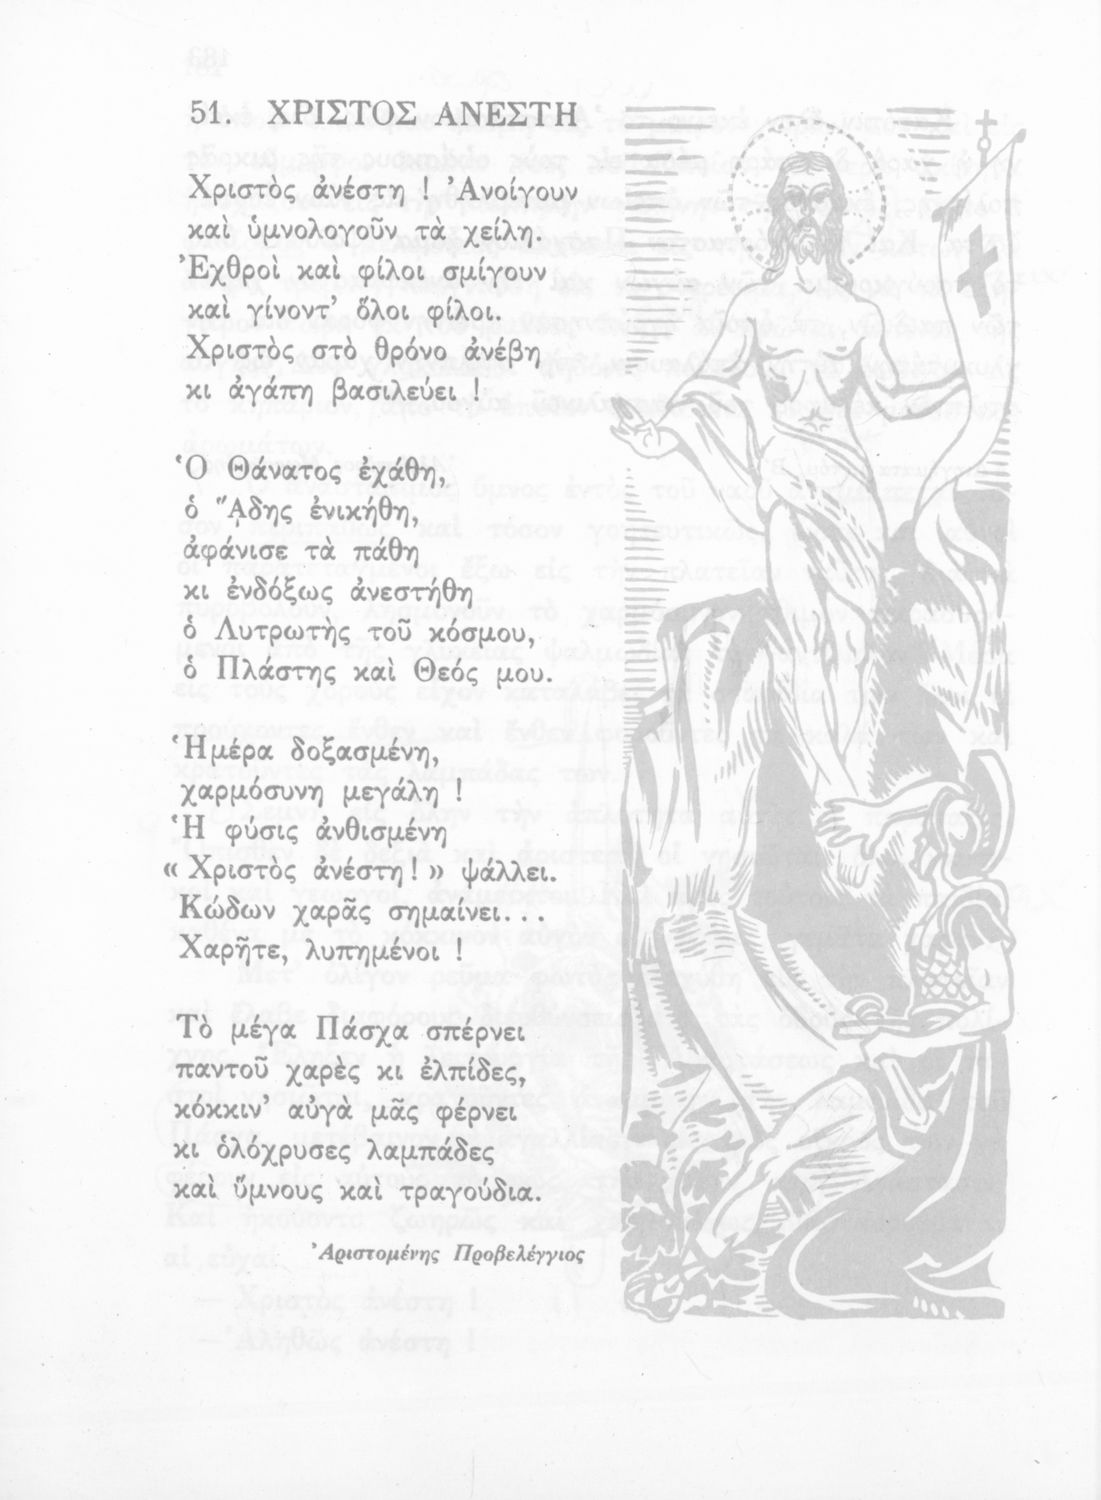 51. ΧΡΙΣΤΟΣ ΑΝΕΣΤΗ
Χριστὸς ἀνέστη ! Ἀνοίγουν
καὶ ὑμνολογοῦν τὰ χείλη.
Ἐχθροὶ καὶ φίλοι σμίγουν
καὶ γίνοντ’ ὅλοι φίλοι.
Χριστὸς στὸ θρόνο ἀνέβη
κι ἀγάπη βασιλεύει !
Ὁ Θάνατος ἐχάθη,
ὁ ῎ᾼδης ἐνικήθη,
ἀφάνισε τὰ πάθη
κι ἐνδόξως ἀνεστήθη
ὁ Λυτρωτὴς τοῦ κόσμου,
ὁ Πλάστης καὶ Θεός μου.
Ἡμέρα δοξασμένη,
χαρμόσυνη μεγάλη !
Ἡ φύσις ἀνθισμένη
« Χριστὸς ἀνέστη ! » ψάλλει.
Κώδων χαρᾶς σημαίνει...
Χαρῆτε, λυπημένοι !
Τὸ μέγα Πάσχα σπέρνει
παντοῦ χαρὲς κι ἐλπίδες,
κόκκιν’ αὐγὰ μᾶς φέρνει
κι ὁλόχρυσες λαμπάδες
καὶ ὕμνους καὶ τραγούδια.
Ἀριστομένης Προβελέγγιος